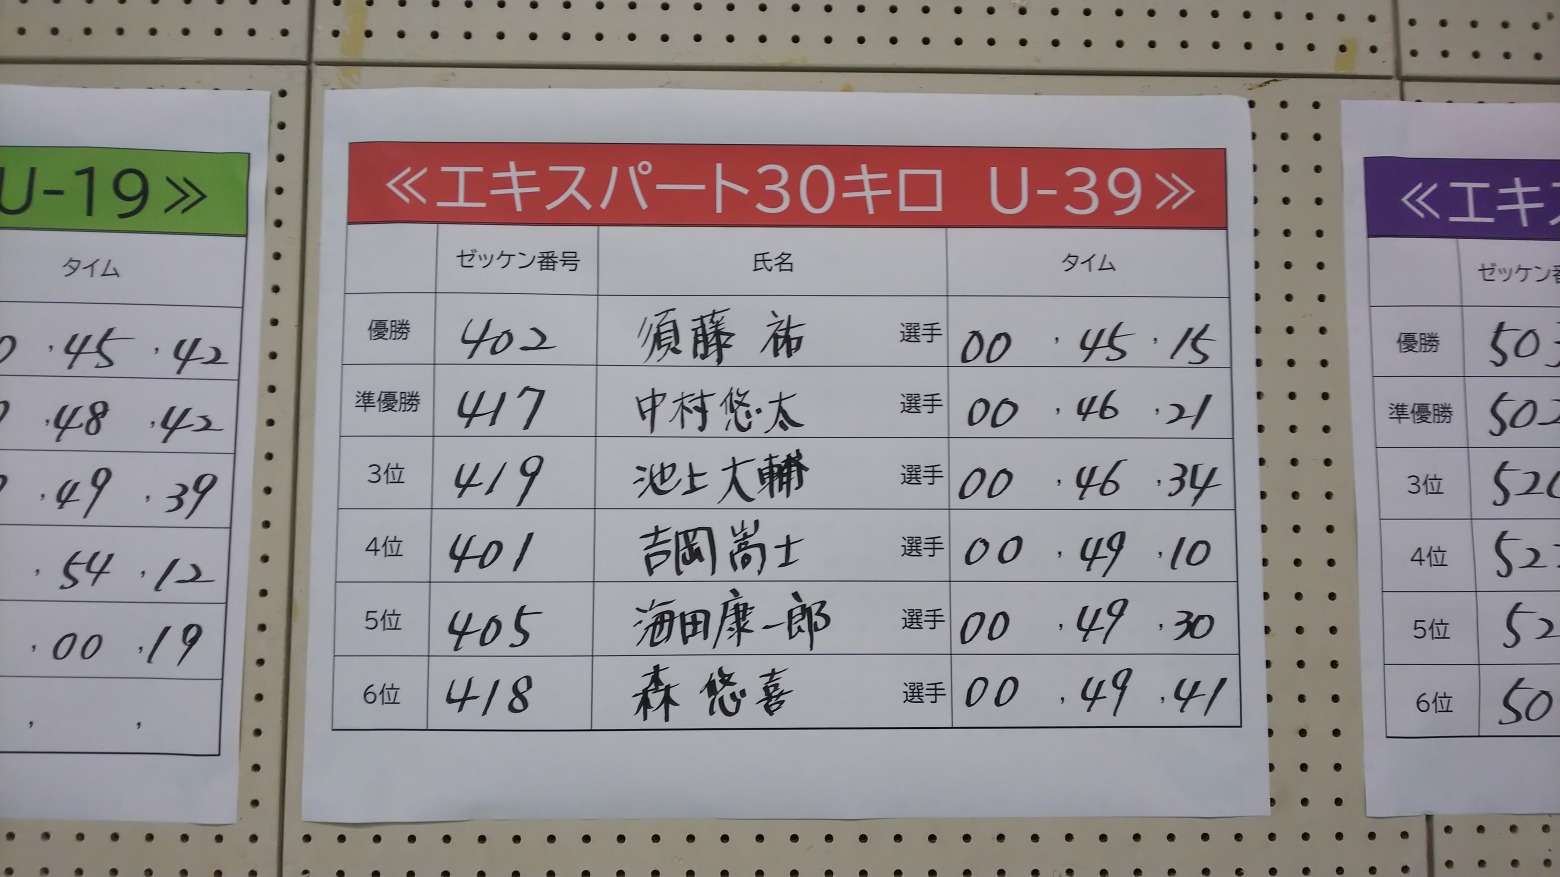 U-19≫
タイム
,45 ,42
,48 ,42
,49 ,39
,54 ,12
,00 ,19
, ,
≪エキスパート30キロ U-39≫
ゼッケン番号 氏名 タイム
優勝 402 須藤 祐 選手 00 ,45 ,15
準優勝 417 中村悠太 選手 00 ,46 ,21
3位 419 池上大輔 選手 00 ,46 ,34
4位 401 吉岡嵩士 選手 00 ,49 ,10
5位 405 海田康一郎 選手 00 ,49 ,30
6位 418 森 悠喜 選手 00 ,49 ,41
≪エキ
ゼッケン
優勝 503
準優勝 502
3位 52
4位 52
5位 52
6位 50